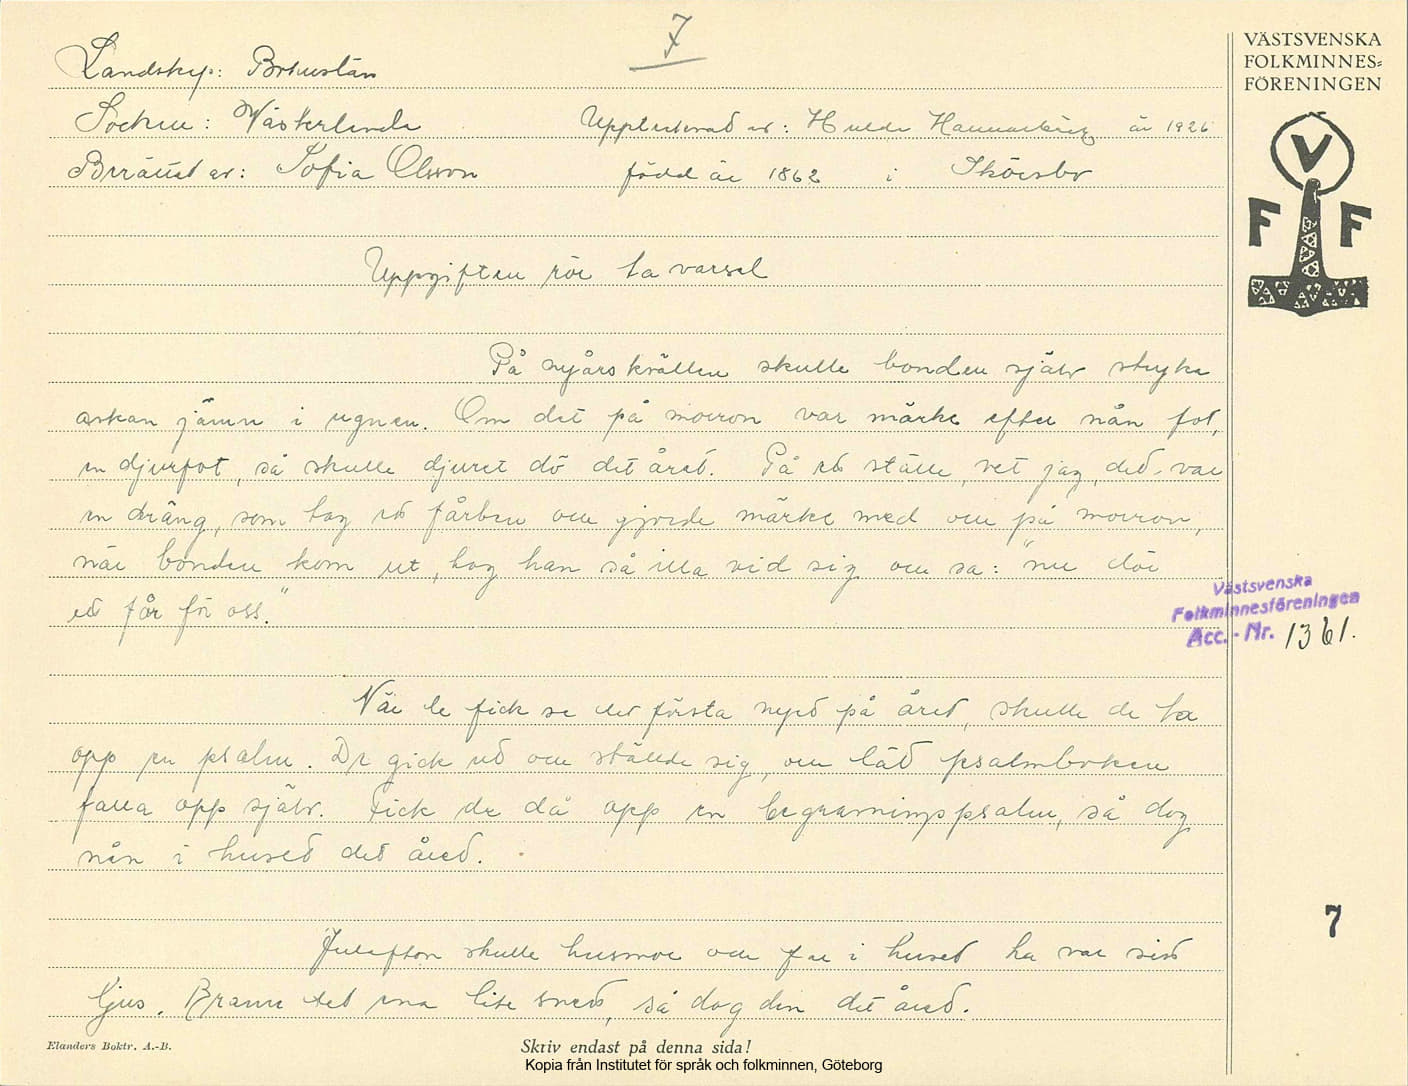 7
VÄSTSVENSKA
FOLKMINNES-
FÖRENINGEN
V
F F
Landskap: Bohuslän
Socken: Västerlanda Upptecknad av: Hulda Hammarbäck år 1926
Berättat av: Sofia Olsson född år 1862 i Sköräsbo
Uppgiften rör ta varsel
På nyårskvällen skulle bonden själv stryka
askan jämn i ugnen. Om det på morron var märke efter nån fot,
en djurfot, så skulle djuret dö det året. På ett ställe, vet jag, det var
en dräng, som tog ett fårben och gjorde märke med och på morron,
när bonden kom ut, tog han så illa vid sig och sa: "nu dör
ett får för oss."
När de fick se det första nyet på året, skulle de ta
opp en psalm. De gick ut och ställde sig, och lät psalmboken
falla opp själv. Fick de då opp en begravningspsalm, så dog
nån i huset det året.
Julafton skulle husmor och far i huset ha var sitt
ljus. Brann det ena lite snett, så dog den det året.
Västsvenska
Folkminnesföreningen
Acc.-Nr. 1361.
7
Elanders Boktr. A.-B.
Skriv endast på denna sida!
Kopia från Institutet för språk och folkminnen, Göteborg